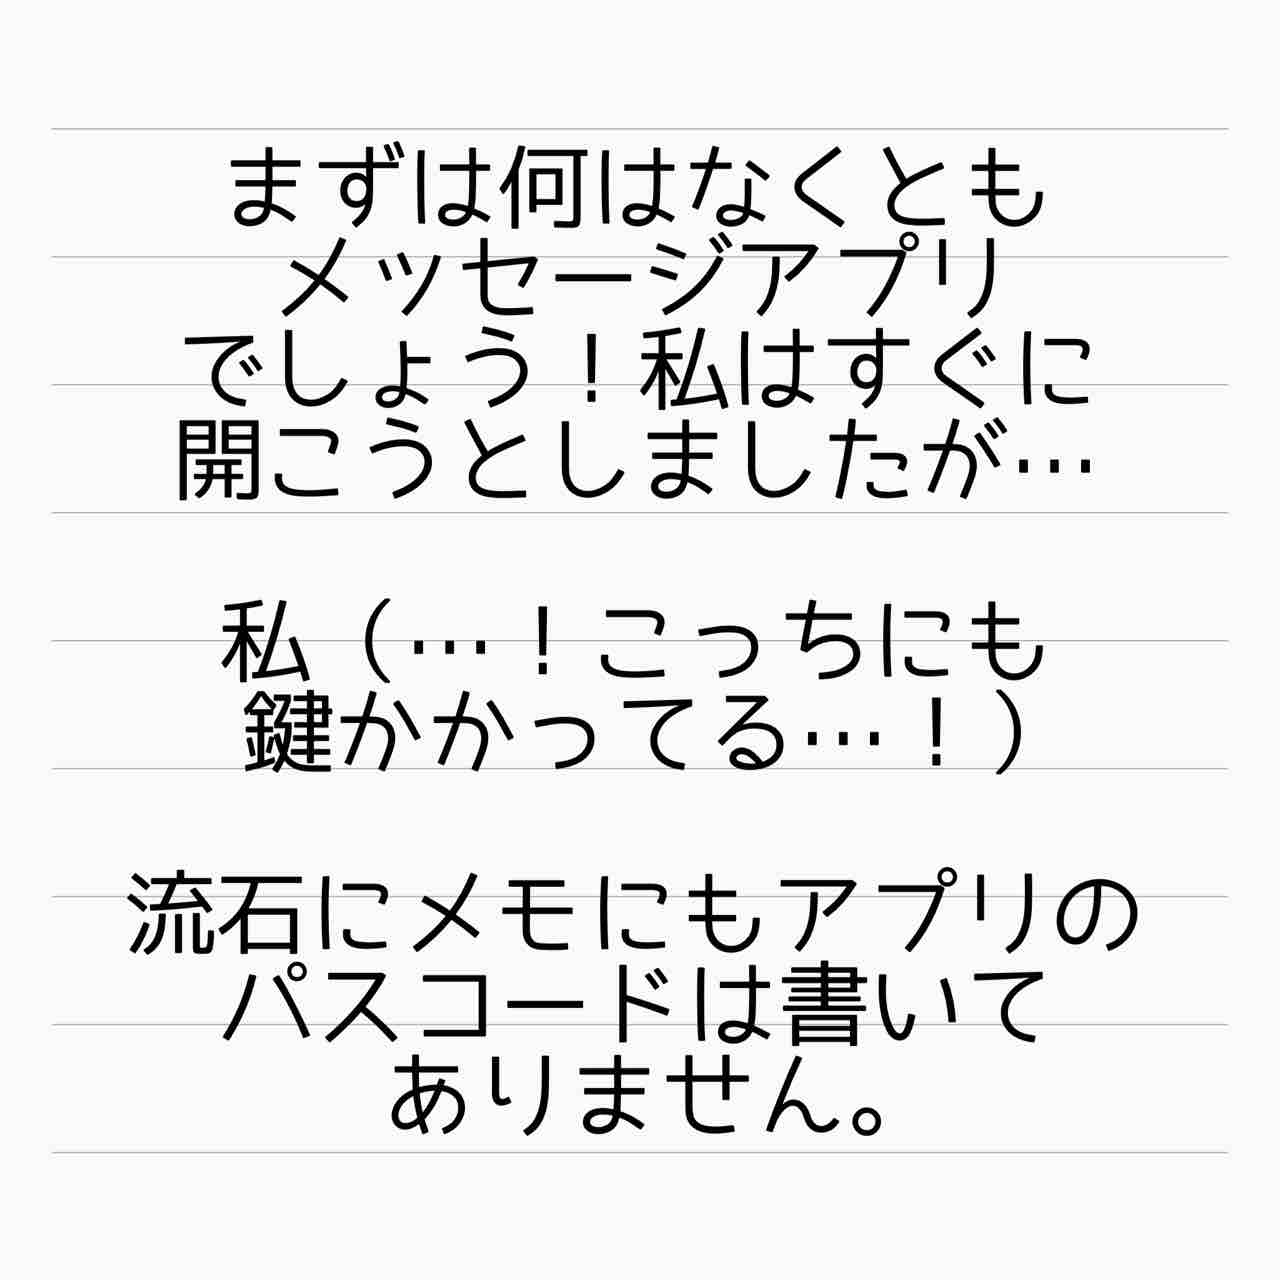 まずは何はなくとも
メッセージアプリ
でしょう！私はすぐに
開こうとしましたが…
私（…！こっちにも
鍵かかってる…！）
流石にメモにもアプリの
パスコードは書いて
ありません。